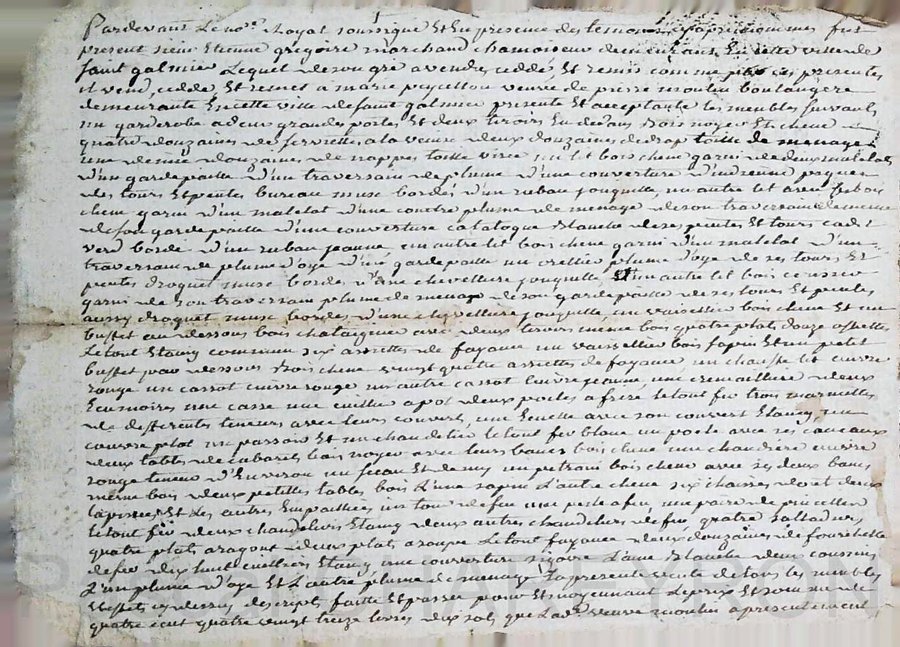 Pardevant Le no.re Royal soussigné Et En presence des temoins cy apres nommés fut
present sieur Etienne grégoire marchand chamoiseur demeurant En cette ville de
saint galmier Lequel de son gré a vendu, ceddé, Et remis comme par ces presentes
il vend, cedde Et remet a marie peycellon veuve de pierre moulin boulangere
demeurante En cette ville de saint galmier presente Et acceptante les meubles suivants
un garderobe a deux grandes portes Et deux tiroirs En dedans bois noyer Et chene
quatre douzaines de serviettes a la venise deux douzaines de drap toille de menage
une demie douzaine de nappes toille un lit bois chene garni de deux matelats
d'un gardepaille d'un traversain de plume d'une couverture d'indienne piquée
des tours Et pentes bureau muse bordé d'un ruban jonquille, un autre lit avec bois
chene garni d'un matelat d'une contre plume de menage de son traversain de meme
de son gardepaille d'une couverture catalogue blanche de ses pentes Et tours cadit
verd bordé d'un ruban jeaune, un autre lit bois chene garni d'un matelat d'un
traversain de plume d'oye d'un gardepaille un plume d'oye de ses tours, Et
pentes droguet muse bordés d'une chevelliere jonquille, Et un autre lit bois
garni de son traversain plume de menage de son gardepaille de ses tours Et pentes
aussy droguet muse, bordés d'une chevelliere jonquille, un vaiselier bois chene Et un
buffet au dessous bois chataignier avec deux tiroirs meme bois quatre plats, douze assiettes
Le tout Etaing commun six assiettes de fayance un vaisselier bois sapin Et un petit
buffet pour dessous bois chene vingt quatre assiettes de fayance, un chauffe lit cuivre
rouge un cassot cuivre rouge un autre cassot cuivre jeaune, une cremailliere deux
Ecumoires une casse une cuilliere a pot deux poeles a frire le tout fer trois marmittes
de differentes teneurs avec leurs couverts, une avec son couvert Etaing, un
couvre plat un passoir Et un chandelier le tout fer blanc un poele avec ses cancaux
deux tables de cabarets bois noyer avec leurs bancs bois chene une chaudiere cuivre
rouge teneur d'Environ un seau Et demy un petrain bois chene avec ses deux bancs
meme bois deux petittes tables bois L'une sapin L'autre chene six chaises dont deux
tapissées Et Les autres Empaillées un tour de feu une pelle a feu, une paire de pincettes
le tout fer deux chandeliers Etaing deux autres chandeliers de fer, quatre salladiers
quatre plats a ragout deux plats a soupe Le tout fayance deux douzaines de fourchette
de fer dix huit cuilliers Etaing, une couverture L'une blanche deux coussins
L'un plume d'oye Et L'autre plume de menage La presente vente de tous les meubles
Et effets cy dessus descripts faitte Et passée pour Et moyennant Le prix Et somme de
quatre cent quatre vingt treize livres dix sols que Lad. veuve moulin a presentement